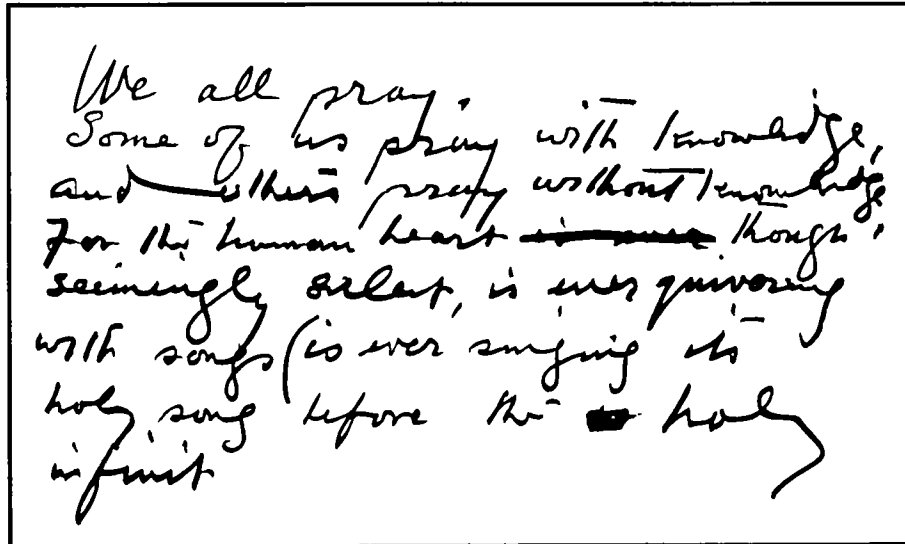 We all pray.
Some of us pray with knowledge,
and others pray without knowledge
For the human heart though
seemingly silent, is ever quivering
with songs (is ever singing its
holy song before the holy
infinit